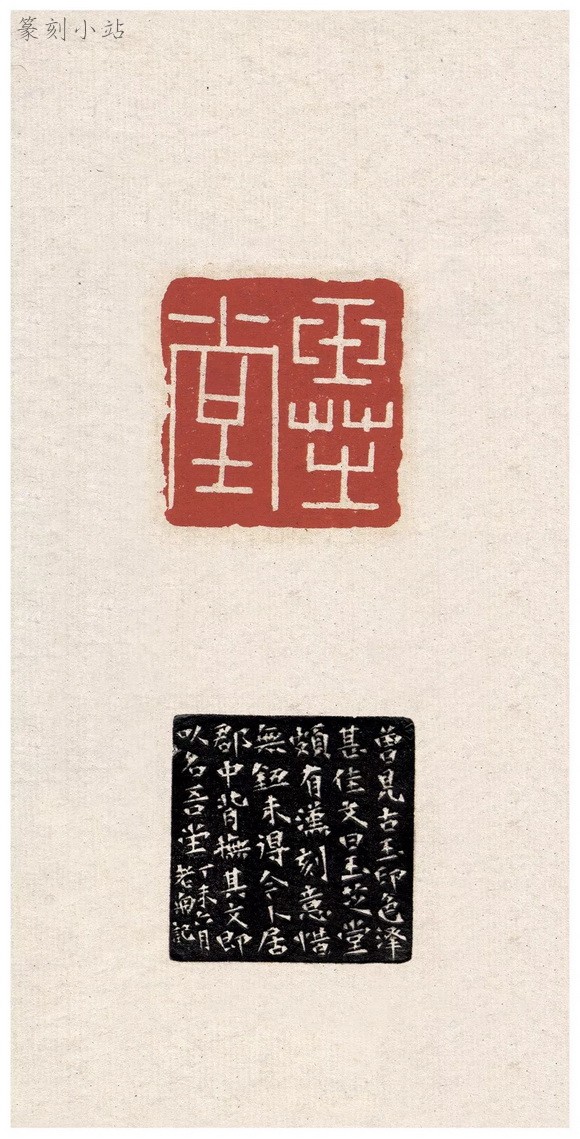 篆刻小站
玉芝
堂
曾見古玉印色澤
甚佳文曰玉芝堂
頗有漢刻意惜
無鈕未得今卜居
郡中背橅其文即
以名吾堂丁未六月
老匊記